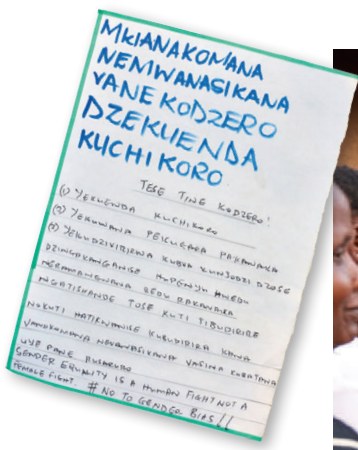 MKIANAKOMANA
NEMWANASIKANA
VANE KODZERO
DZEKUENDA
KUCHIKORO
TESE TINE KODZERO!
(1) YEKUENDA KUCHIKORO
(2) YEKUWANA PEKUGARA PAKANAKA
(3) YEKUDZIVIRIRWA KUBVA KUNJODZI DZOSE
DZINOKANGANISE HUPENYU HWEDU
NERAMANGWANA REDU RAKANAKA
NGATISHANDE TOSE KUTI TIBUDIRIRE
NOKUTI HATIKWANISE KUBUDIRIRA KANA
VANAKOMANA NEVANASIKANA VASINA KUBATANA
PANE RUSARURO
GENDER EQUALITY IS A HUMAN FIGHT NOT A
FEMALE FIGHT. # NO TO GENDER BIAS!!